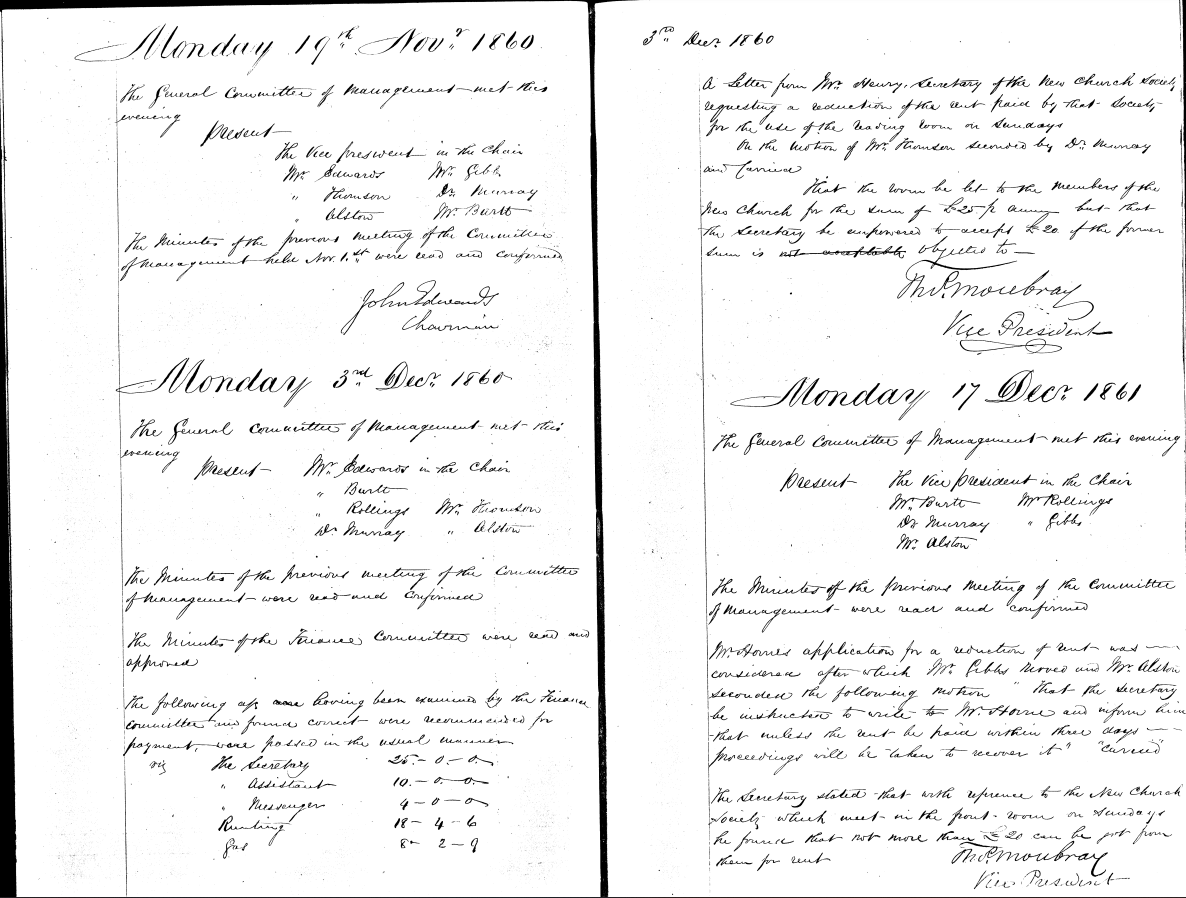 Monday 19th Novr 1860
The General Committee of Management met this
evening
Present
The Vice President in the Chair
Mr Edwards Mr Gibbs
" Thomson Dr Murray
" Alston Mr Burtt
The Minutes of the previous meeting of the Committee
of Management held Nov. 1st were read and confirmed
John Edwards
Chairman
Monday 3rd Decr 1860
The General Committee of Management met this
evening
Present Mr Edwards in the Chair
" Burtt
" Rollings Mr Thomson
Dr Murray " Alston
The Minutes of the previous meeting of the Committee
of Management were read and confirmed
The Minutes of the Finance Committee were read and
approved
The following a/cs having been examined by the Finance
Committee and found correct were recommended for
payment, were passed in the usual manner
viz The Secretary 25 - 0 - 0
" Assistant 10 - 0 - 0
" Messenger 4 - 0 - 0
18 - 4 - 6
Gas 8 - 2 - 9
3rd Decr 1860
A Letter from Mr Henry, Secretary of the New Church Society
requesting a reduction of the rent paid by that Society
for the use of the reading room on Sundays
On the motion of Mr Thomson seconded by Dr Murray
and Carried
That the room be let to the members of the
New Church for the sum of £25 p annum but that
the Secretary be empowered to accept £20 if the former
sum is not acceptable objected to
Thos. Moubray
Vice President
Monday 17 Decr 1861
The General Committee of Management met this evening
Present The Vice President in the Chair
Mr Burtt Mr Rollings
Dr Murray " Gibbs
Mr Alston
The Minutes of the previous Meeting of the Committee
of Management were read and confirmed
Mr Hornes application for a reduction of rent was
considered after which Mr Gibbs moved and Mr Alston
seconded the following motion " That the Secretary
be instructed to write to Mr Horne and inform him
that unless the rent be paid within three days
proceedings will be taken to recover it" "Carried"
The Secretary stated that with reference to the New Church
Society which meet in the front room on Sundays
he found that not more than £20 can be got from
them for rent Thos. Moubray
Vice President